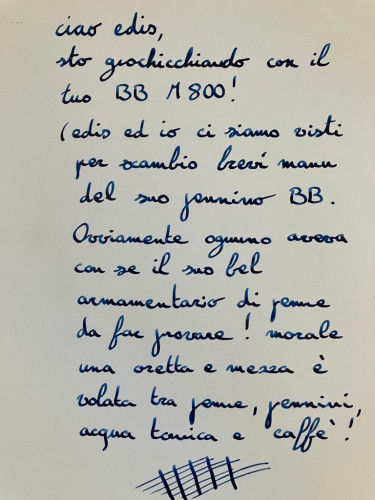 ciao edis,
sto giochicchiando con il
tuo BB M800!
(edis ed io ci siamo visti
per scambio brevi manu
del suo pennino BB.
Ovviamente ognuno aveva
con se il suo bel
armamentario di penne
da far provare! morale
una oretta e mezza è
volata tra penne, pennini,
acqua tonica e caffè!